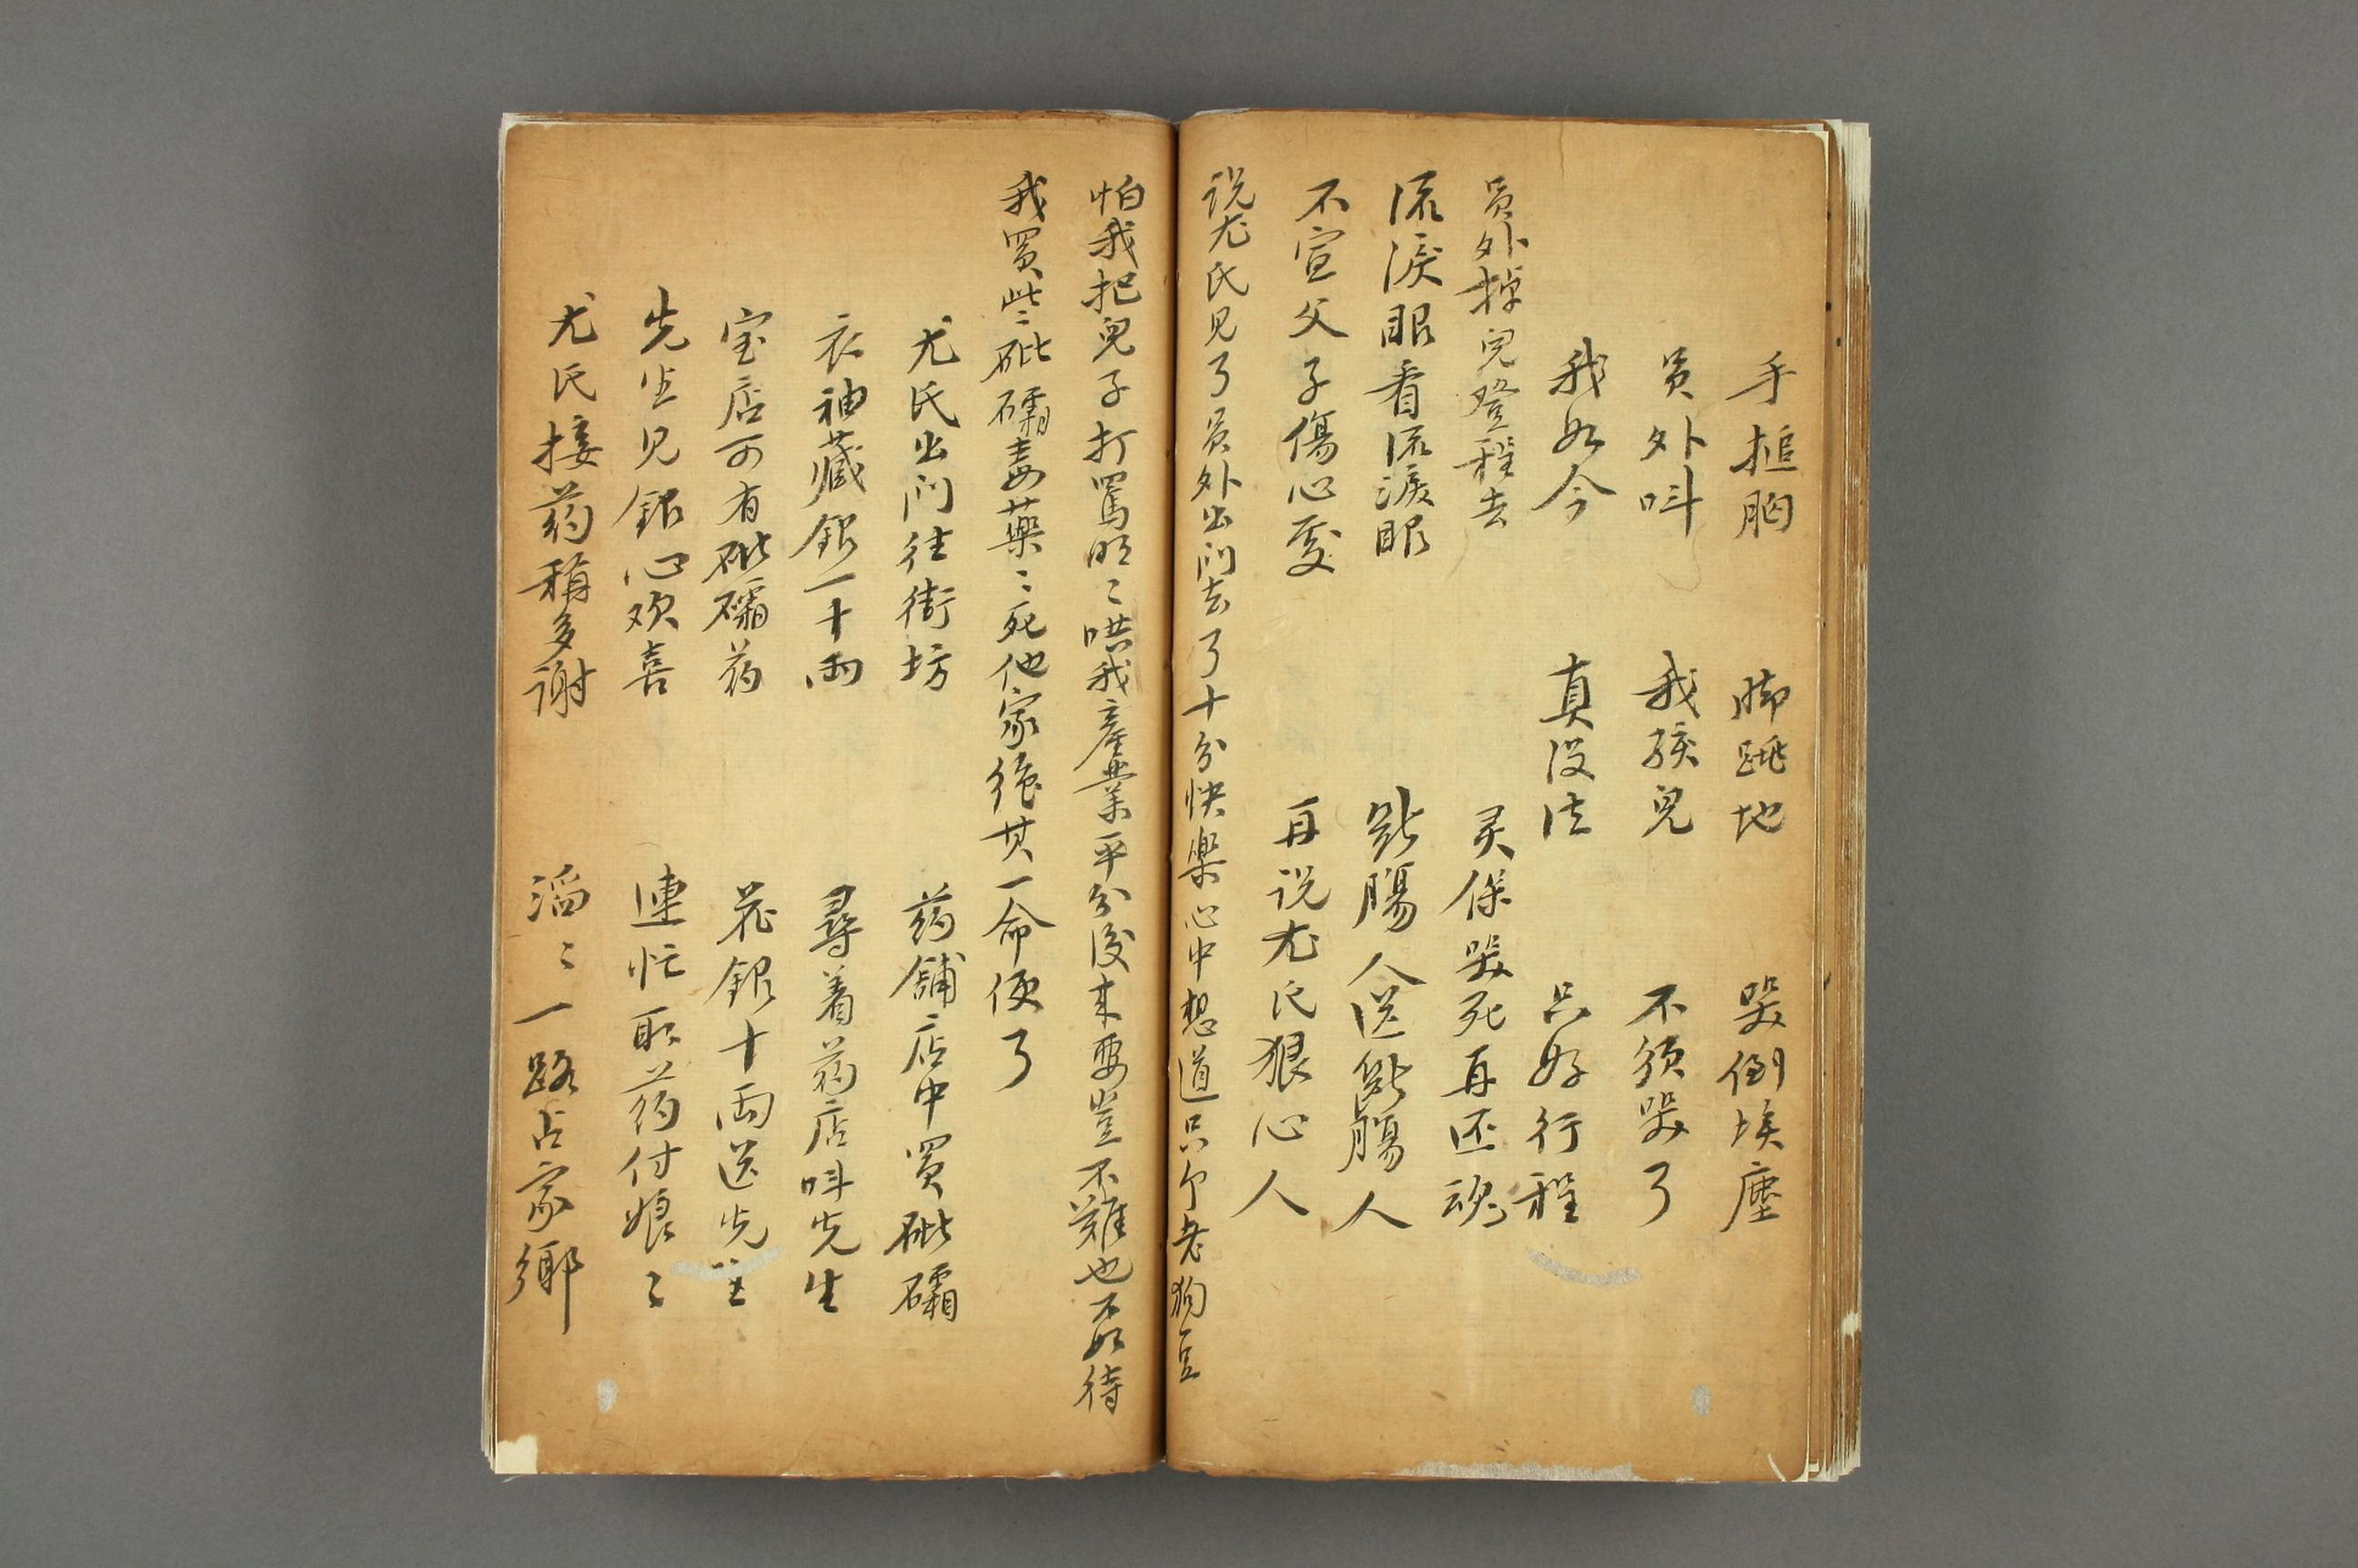 手搥胸 脚跳地 哭倒埃塵
員外呌 我孩兒 不須哭了
我如今 真没法 只好行程
員外掉兒登程去 灵保哭死再还魂
流淚眼看流淚眼 断腸人送断腸人
不宣父子傷心處 再说尤氏狠心人
说尤氏见了員外出门去了十分快樂心中想道只个老狗豆
怕我把兒子打罵明〻哄我産業平分後来要豈不難也不如待
我買些〻砒礵毒藥〻死他家後其一命便了
尤氏出门往街坊 药舖店中買砒礵
衣袖藏銀一十両 尋着药店呌先生
宝店可有砒礵药 花銀十両送先生
先生见銀心欢喜 連忙取药付娘〻
尤氏接药稱多谢 滔〻一路占家鄉